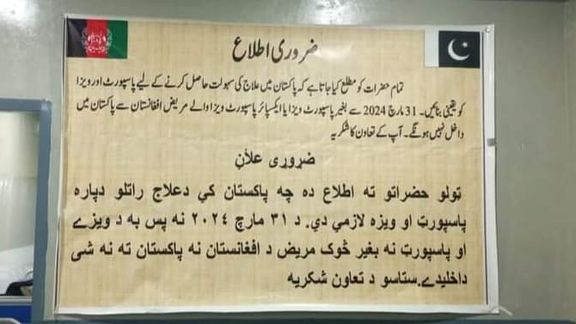 ضروری اطلاع
تمام حضرات کو مطلع کیا جاتا ہے کہ پاکستان میں علاج کی سہولت حاصل کرنے کے لیے پاسپورٹ اور ویزا
کو یقینی بنائیں۔ 31 مارچ 2024 سے بغیر پاسپورٹ ویزا یا ایکسپائر پاسپورٹ ویزا والے مریض افغانستان سے پاکستان میں
داخل نہیں ہونگے۔ آپ کے تعاون کا شکریہ
ضروری علاڼ
ټولو حضراتو ته اطلاع ده چه پاکستان کي دعلاج راتلو دپاره
پاسپورټ او ويزه لازمي دي. د ۳۱ مارچ ۲۰۲۴ نه پس به د ويزے
او پاسپورټ نه بغير څوک مريض د افغانستان نه پاکستان ته نه شی
داخليدے.ستاسو د تعاون شکريه